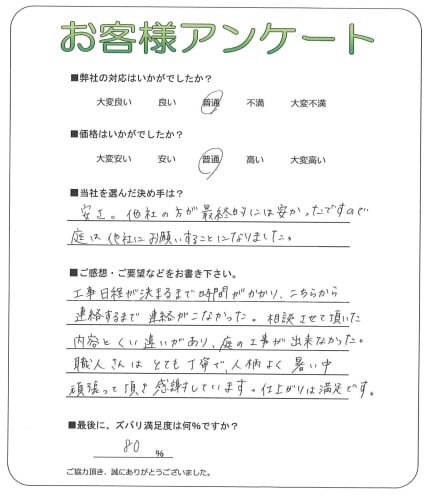 お客様アンケート
■弊社の対応はいかがでしたか?
大変良い 良い 普通 不満 大変不満
■価格はいかがでしたか?
大変安い 安い 普通 高い 大変高い
■当社を選んだ決め手は?
安さ。他社の方が最終的には安かったですので
庭は他社にお願いすることになりました。
■ご感想・ご要望などをお書き下さい。
工事日経が決まるまで時間がかかり、こちらから
連絡するまで連絡がこなかった。相談させて頂いた
内容とくい違いがあり、庭の工事が出来なかった。
職人さんはとても丁寧で、人柄よく暑い中
頑張って頂き感謝しています。仕上がりは満足です。
■最後に、ズバリ満足度は何%ですか?
80 %
ご協力頂き、誠にありがとうございました。